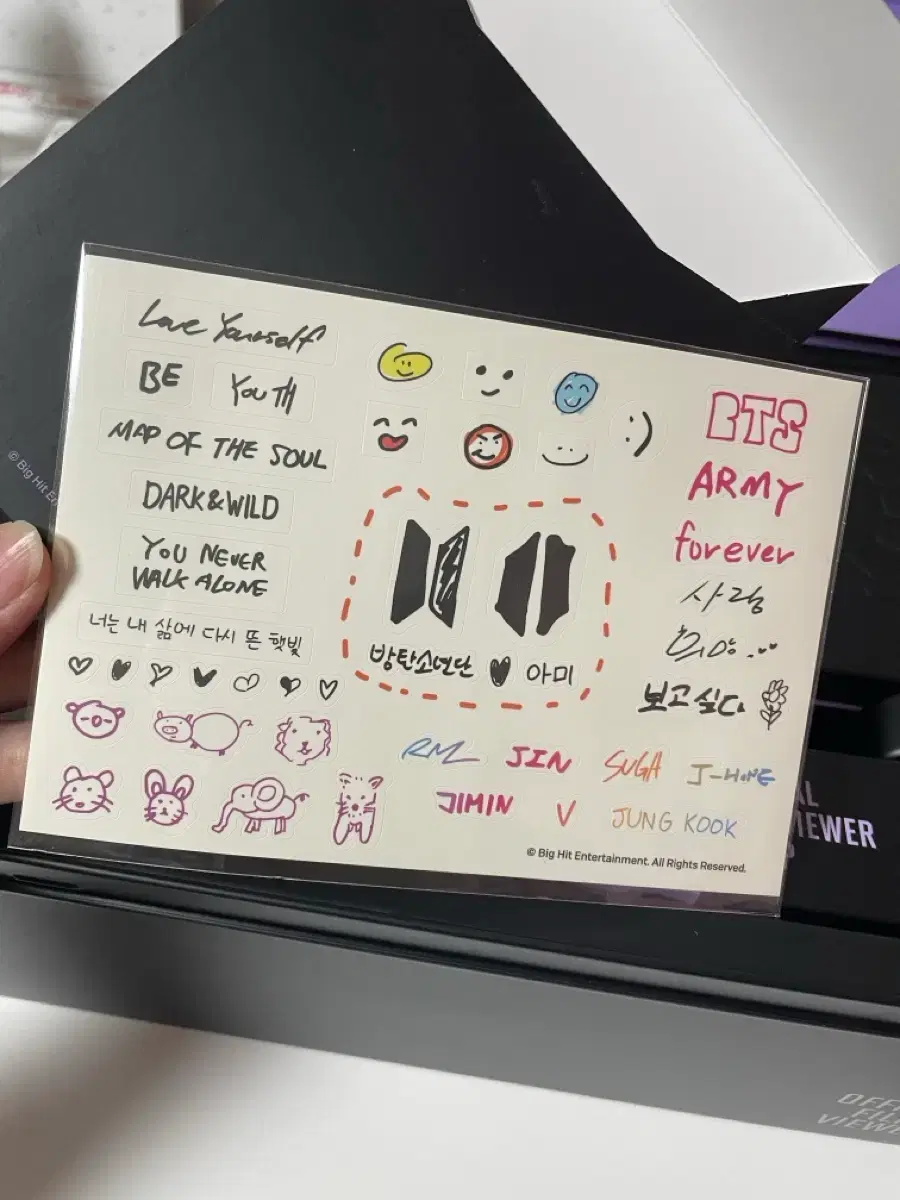 Love Yourself
BE
YOUTH
MAP OF THE SOUL
DARK&WILD
YOU NEVER
WALK ALONE
너는 내 삶에 다시 뜬 햇빛
:)
방탄소년단 아미
BTS
ARMY
forever
사랑
보고싶다
RM JIN SUGA J-HOPE
JIMIN V JUNG KOOK
© Big Hit Entertainment. All Rights Reserved.
© Big Hit